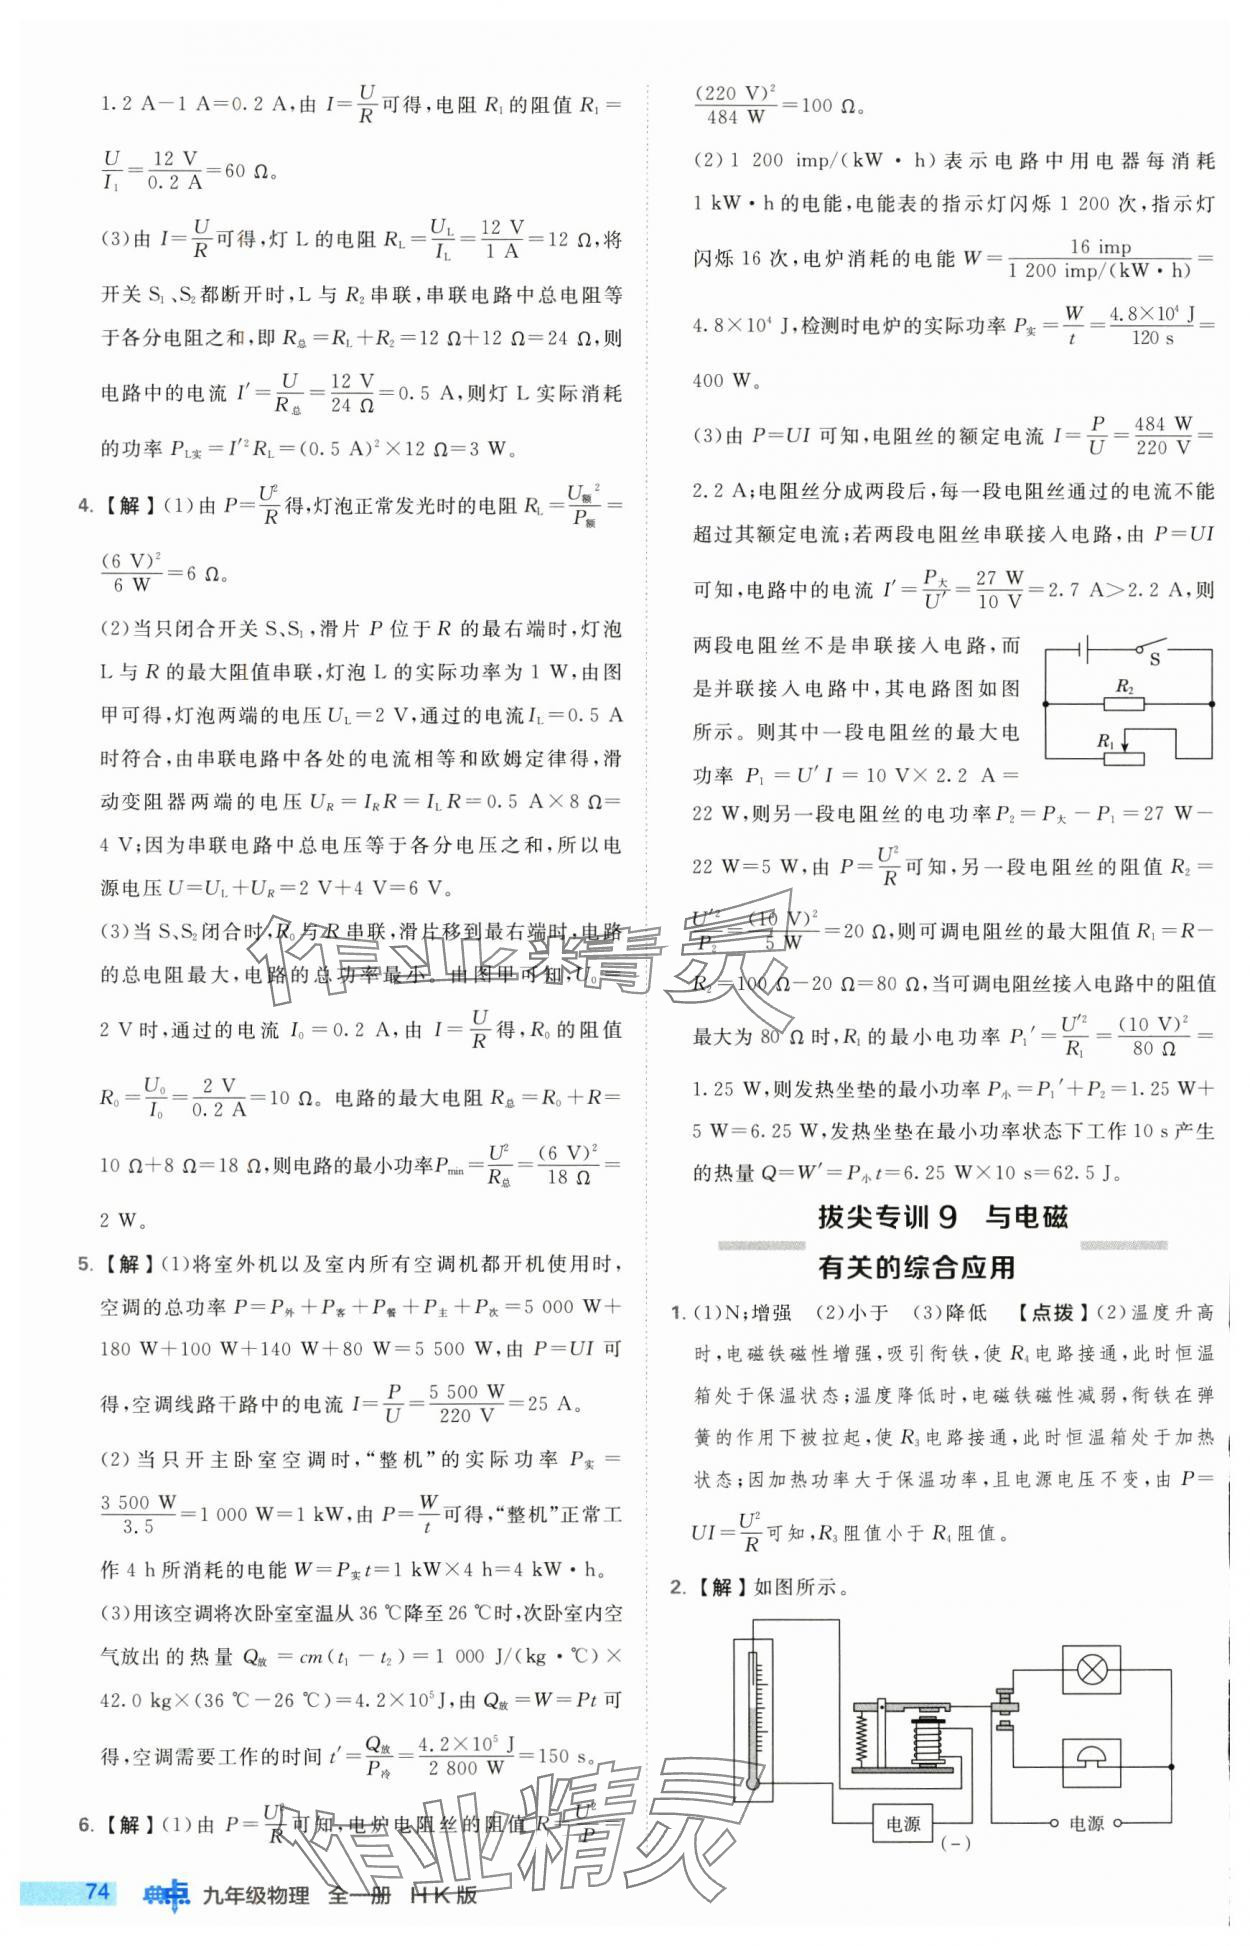 1.2 A−1 A=0.2 A,由 I=U/R可得,电阻 R₁的阻值 R₁=
U/I₁=12 V/0.2 A=60 Ω。
(3)由 I=U/R可得,灯 L 的电阻 R_L=U_L/I_L=12 V/1 A=12 Ω,将
开关 S₁、S₂都断开时,L 与 R₂串联,串联电路中总电阻等
于各分电阻之和,即 R总=R_L+R₂=12 Ω+12 Ω=24 Ω,则
电路中的电流 I′=U/R总=12 V/24 Ω=0.5 A,则灯 L 实际消耗
的功率 P_L实=I′²R_L=(0.5 A)²×12 Ω=3 W。
4.【解】(1)由 P=U²/R得,灯泡正常发光时的电阻 R_L=U额²/P额=
(6 V)²/6 W=6 Ω。
(2)当只闭合开关 S、S₁,滑片 P 位于 R 的最右端时,灯泡
L 与 R 的最大阻值串联,灯泡 L 的实际功率为 1 W,由图
甲可得,灯泡两端的电压 U_L=2 V,通过的电流 I_L=0.5 A
时符合,由串联电路中各处的电流相等和欧姆定律得,滑
动变阻器两端的电压 U_R=I_R R=I_L R=0.5 A×8 Ω=
4 V;因为串联电路中总电压等于各分电压之和,所以电
源电压 U=U_L+U_R=2 V+4 V=6 V。
(3)当 S、S₂闭合时,R₀与 R 串联,滑片移到最右端时,电路
的总电阻最大,电路的总功率最小。由图甲可知,U₀=
2 V时,通过的电流 I₀=0.2 A,由 I=U/R得,R₀的阻值
R₀=U₀/I₀=2 V/0.2 A=10 Ω。电路的最大电阻 R总=R₀+R=
10 Ω+8 Ω=18 Ω,则电路的最小功率P_min=U²/R总=(6 V)²/18 Ω=
2 W。
5.【解】(1)将室外机以及室内所有空调机都开机使用时,
空调的总功率 P=P外+P客+P餐+P主+P次=5 000 W+
180 W+100 W+140 W+80 W=5 500 W,由 P=UI 可
得,空调线路干路中的电流 I=P/U=5 500 W/220 V=25 A。
(2)当只开主卧室空调时,“整机”的实际功率 P实=
3 500 W/3.5=1 000 W=1 kW,由 P=W/t可得,“整机”正常工
作 4 h 所消耗的电能 W=P实t=1 kW×4 h=4 kW·h。
(3)用该空调将次卧室室温从 36 ℃降至 26 ℃时,次卧室内空
气放出的热量 Q放=cm(t₁−t₂)=1 000 J/(kg·℃)×
42.0 kg×(36 ℃−26 ℃)=4.2×10⁵J,由 Q放=W=Pt 可
得,空调需要工作的时间 t′=Q放/P冷=4.2×10⁵ J/2 800 W=150 s。
6.【解】(1)由 P=U²/R可知,电炉电阻丝的阻值 R=U²/P=
74 典中点 九年级物理 全一册 HK版
(220 V)²/484 W=100 Ω。
(2)1 200 imp/(kW·h)表示电路中用电器每消耗
1 kW·h的电能,电能表的指示灯闪烁 1 200 次,指示灯
闪烁 16 次,电炉消耗的电能 W=16 imp/1 200 imp/(kW·h)=
4.8×10⁴ J,检测时电炉的实际功率 P实=W/t=4.8×10⁴ J/120 s=
400 W。
(3)由 P=UI 可知,电阻丝的额定电流 I=P/U=484 W/220 V=
2.2 A;电阻丝分成两段后,每一段电阻丝通过的电流不能
超过其额定电流;若两段电阻丝串联接入电路,由 P=UI
可知,电路中的电流 I′=P大/U′=27 W/10 V=2.7 A>2.2 A,则
两段电阻丝不是串联接入电路,而
是并联接入电路中,其电路图如图
所示。则其中一段电阻丝的最大电
功率 P₁=U′I=10 V×2.2 A=
S
R₂
R₁
22 W,则另一段电阻丝的电功率P₂=P大−P₁=27 W−
22 W=5 W,由 P=U²/R可知,另一段电阻丝的阻值 R₂=
U′²/P₂=(10 V)²/5 W=20 Ω,则可调电阻丝的最大阻值 R₁=R−
R₂=100 Ω−20 Ω=80 Ω,当可调电阻丝接入电路中的阻值
最大为 80 Ω时,R₁的最小电功率 P₁′=U′²/R₁=(10 V)²/80 Ω=
1.25 W,则发热坐垫的最小功率 P小=P₁′+P₂=1.25 W+
5 W=6.25 W,发热坐垫在最小功率状态下工作 10 s 产生
的热量 Q=W′=P小t=6.25 W×10 s=62.5 J。
拔尖专训 9 与电磁
有关的综合应用
1.(1)N;增强 (2)小于 (3)降低 【点拨】(2)温度升高
时,电磁铁磁性增强,吸引衔铁,使 R₄电路接通,此时恒温
箱处于保温状态;温度降低时,电磁铁磁性减弱,衔铁在弹
簧的作用下被拉起,使 R₃电路接通,此时恒温箱处于加热
状态;因加热功率大于保温功率,且电源电压不变,由 P=
UI=U²/R可知,R₃阻值小于 R₄阻值。
2.【解】如图所示。
电源
(−)
电源
作业精灵
作业精灵